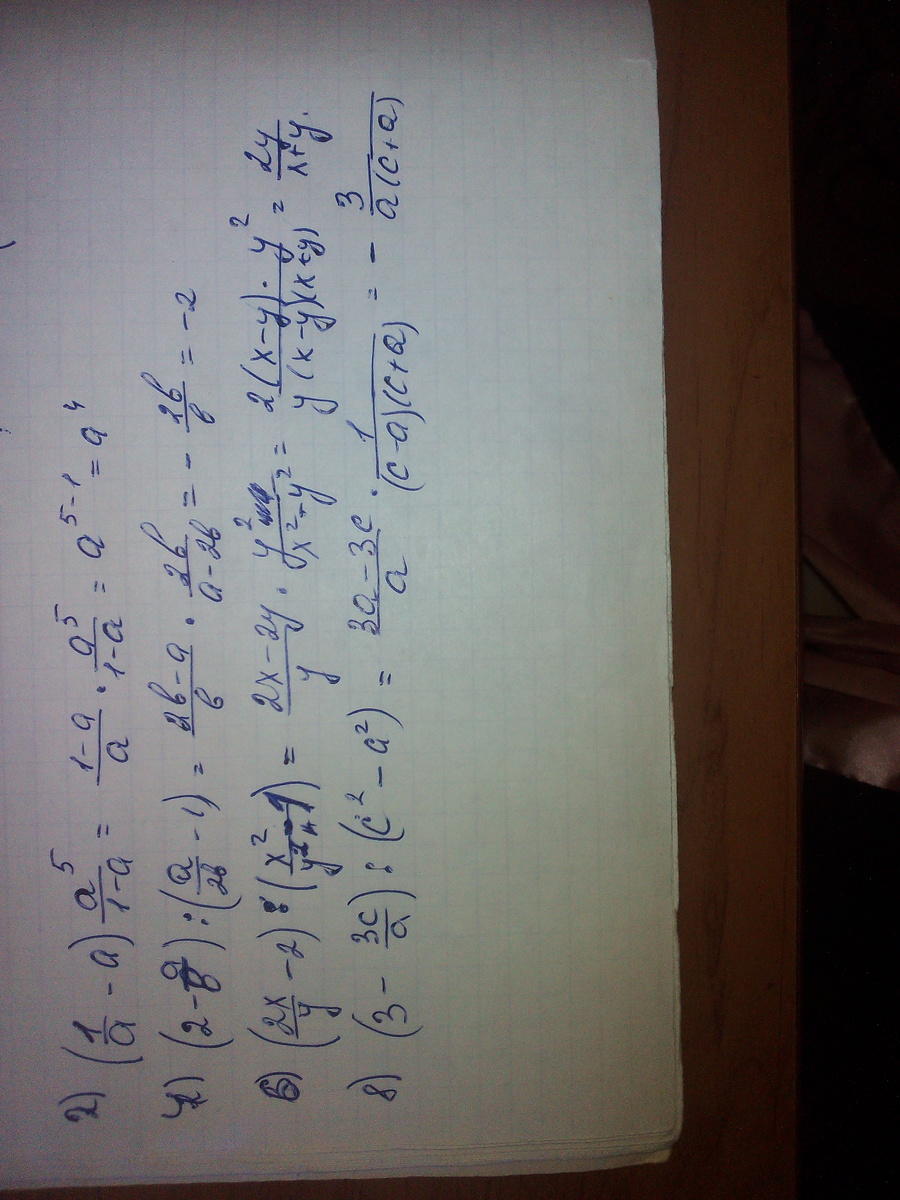 2) (1/a - a) a⁵/1-a = 1-a/a · a⁵/1-a = a⁵⁻¹ = a⁴
4) (2 - a/b) : (a/2b - 1) = 2b-a/b · 2b/a-2b = - 2b/b = -2
6) (2x/y - 2) : (x²/y² - 1) = 2x-2y/y · y²/x²-y² = 2(x-y)·y²/y(x-y)(x+y) = 2y/x+y.
8) (3 - 3c/a) : (c² - a²) = 3a-3c/a · 1/(c-a)(c+a) = - 3/a(c+a)